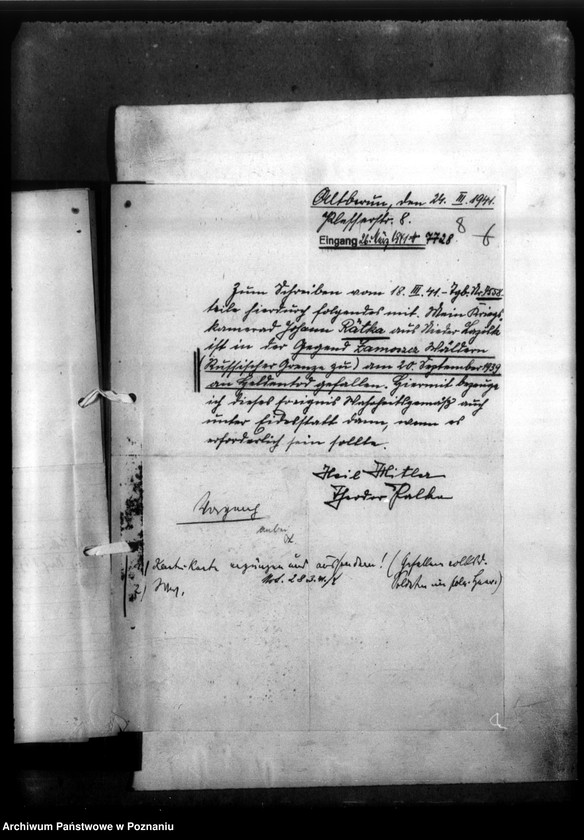 Altberun, den 24. III. 1941.
Plesserstr. 8.
8
Eingang 26. März 1941 7728
Zum Schreiben vom 18. III. 41. - Tgb. Nr.
teile hierdurch folgendes mit. Mein Kriegs-
kamerad Johann Rätka aus Nieder
ist in der Gegend Zamoscer Wäldern
(Russischer Grenze zu) am 20. September 1939
an Heldentod gefallen. Hiermit bezeuge
ich dieses Ereignis Wahrheitsgemäß auch
unter Eidesstatt dann, wenn es
erforderlich sein sollte.
Heil Hitler
Theodor Palka
Vorgang
anbei
1) Kartei-Karte ergänzen und aussondern! (Gefallen
Soldaten im
2)
Archiwum Państwowe w Poznaniu